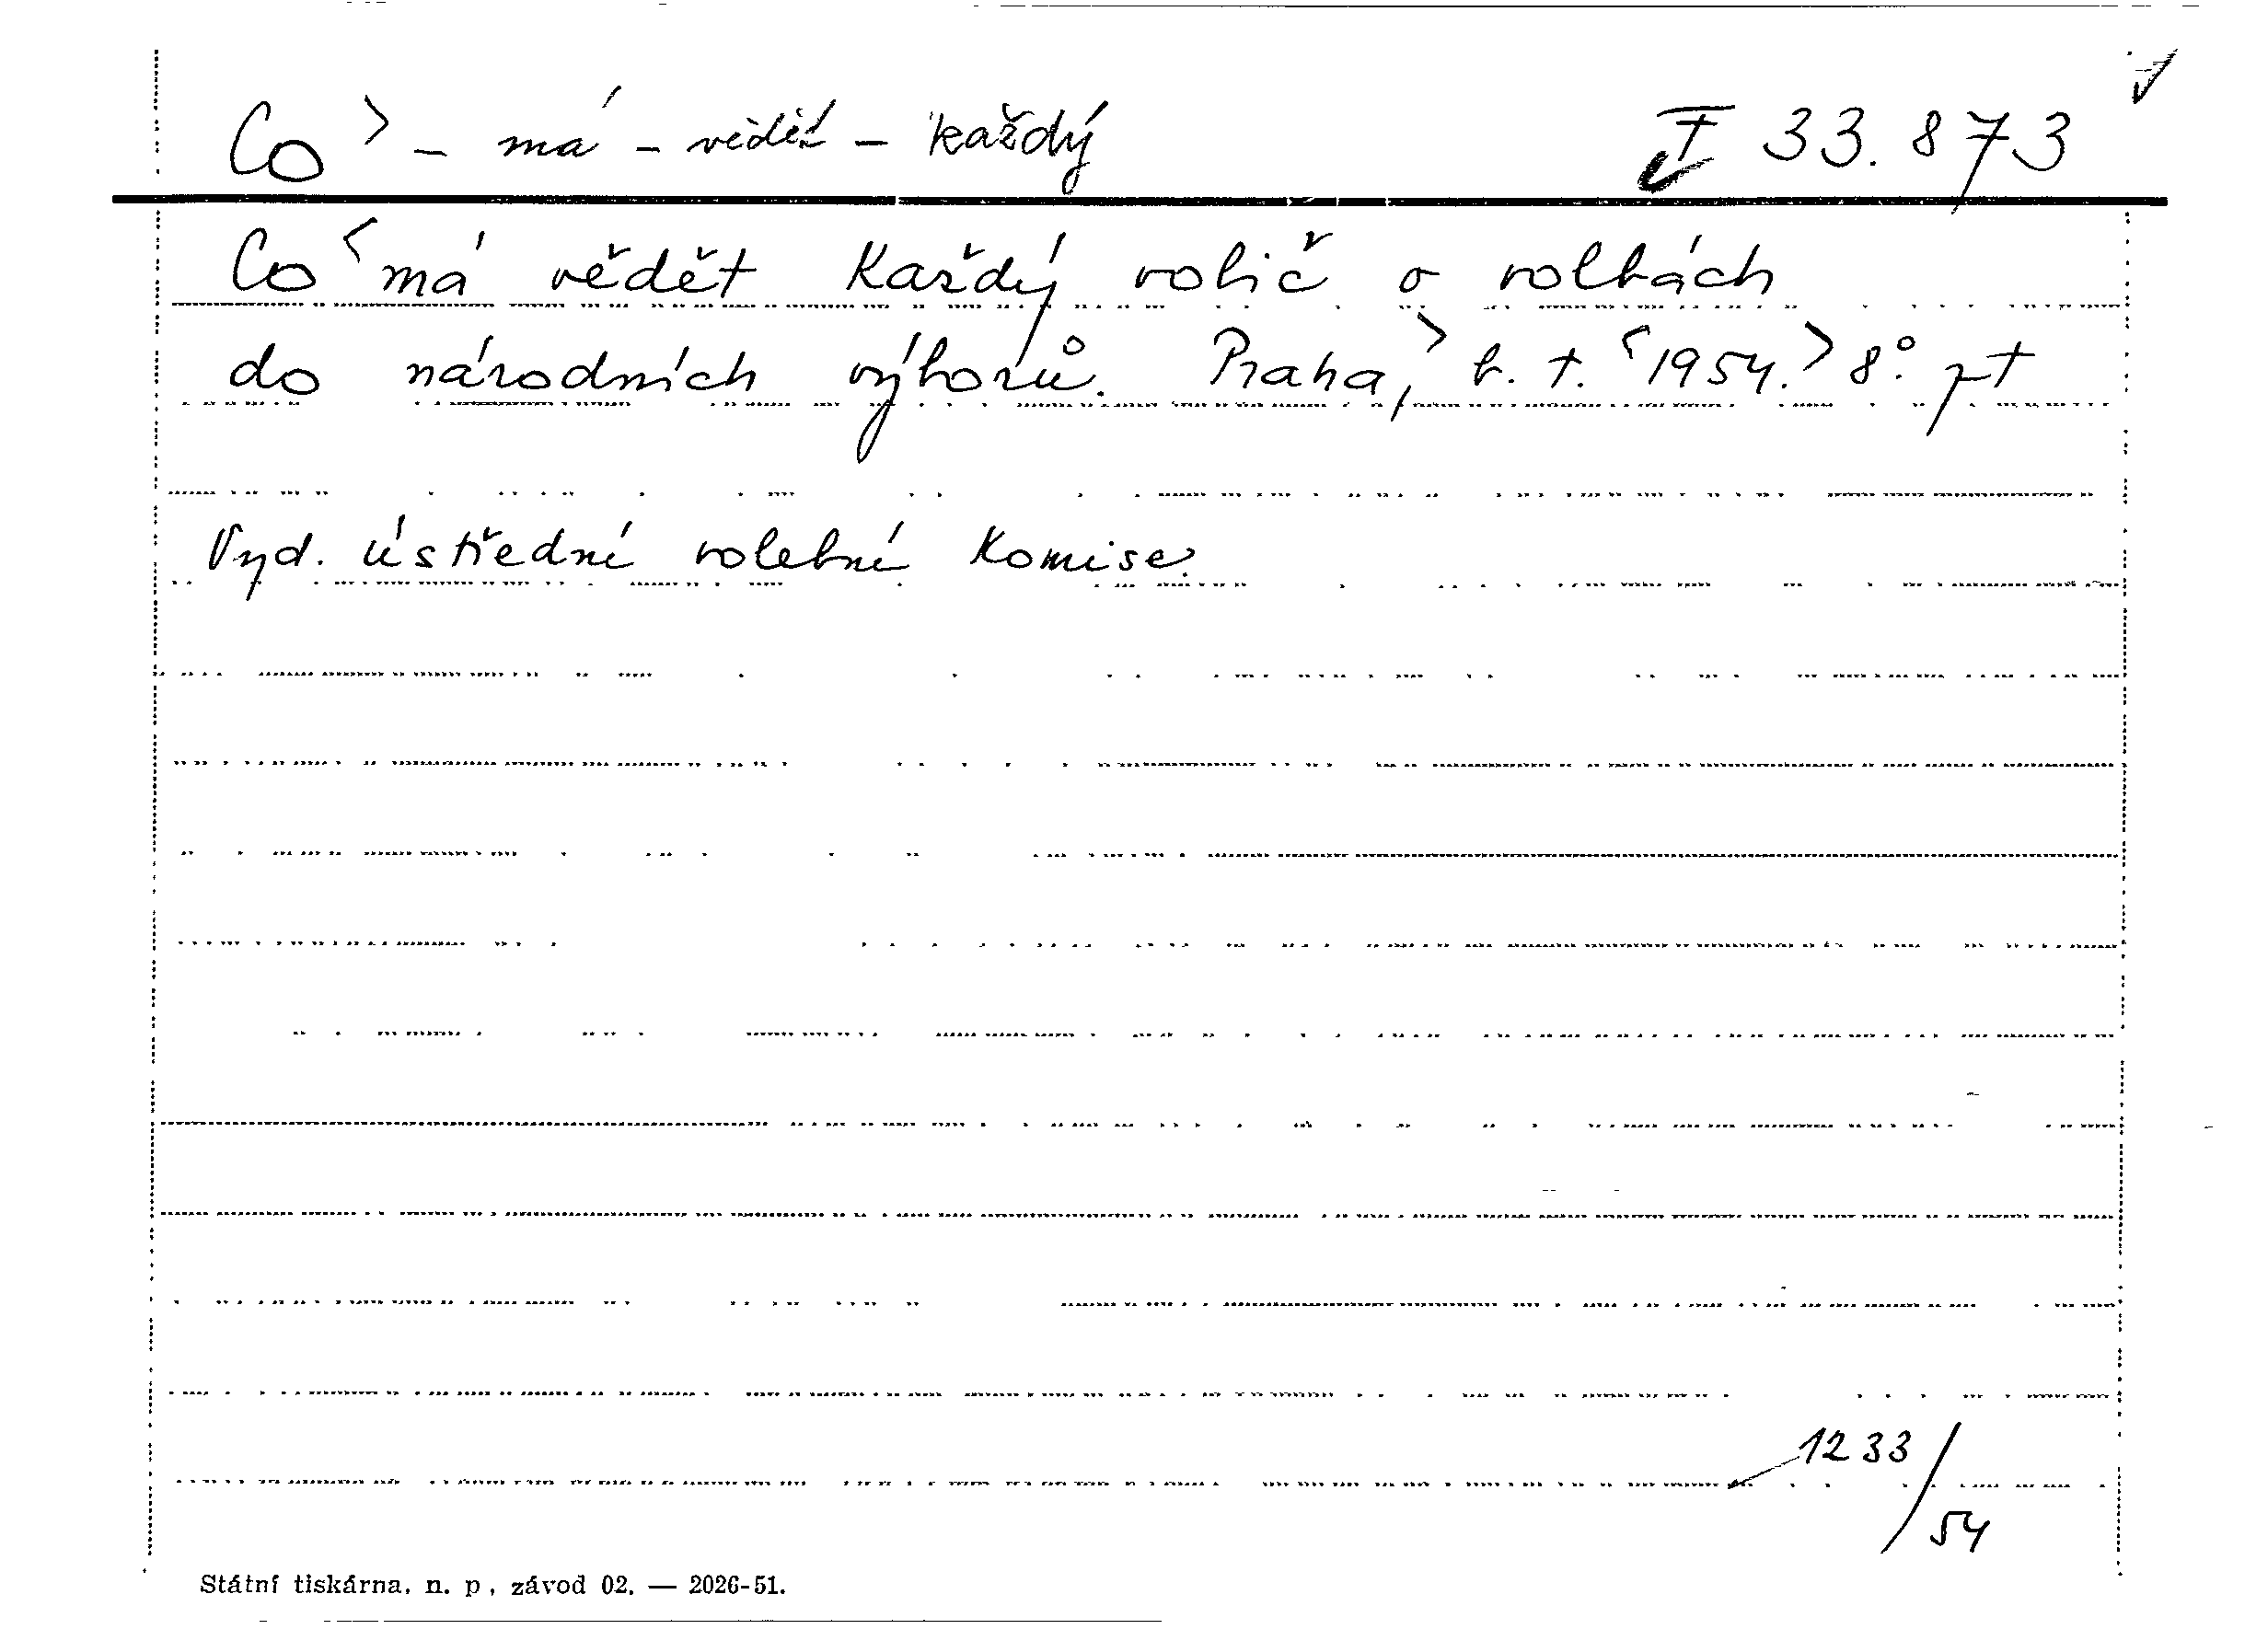 Co > - má - vědět - každý
F 33.873
Co < má vědět každý volič o volbách
do národních výborů. Praha, > b. t. <1954.> 8°. pt
Vyd. ústřední volební komise.
1233/54
Státní tiskárna, n. p., závod 02. — 2026-51.